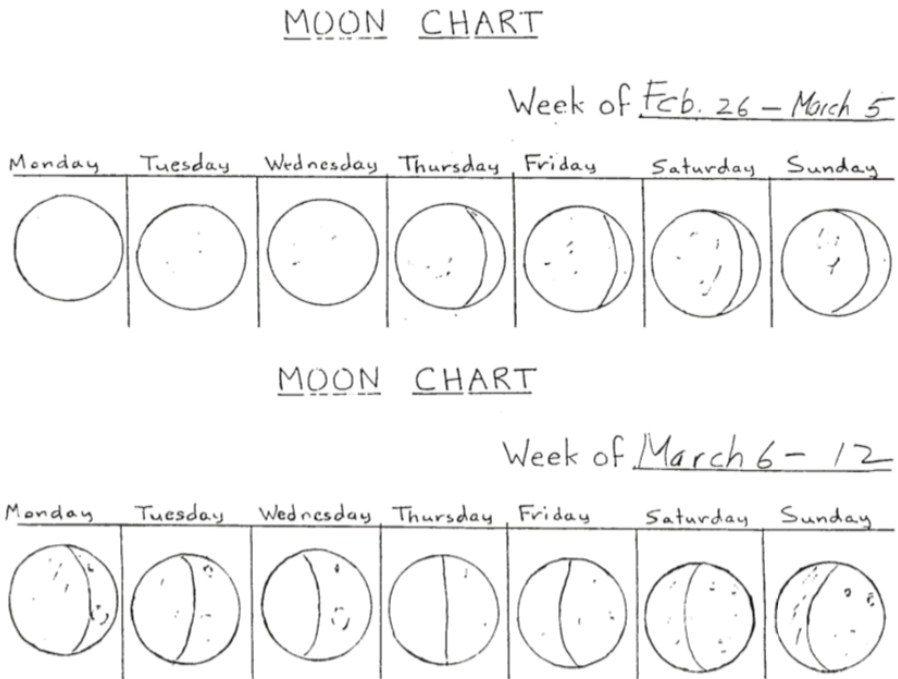 MOON CHART
Week of Feb. 26 – March 5
Monday Tuesday Wednesday Thursday Friday Saturday Sunday
MOON CHART
Week of March 6 – 12
Monday Tuesday Wednesday Thursday Friday Saturday Sunday